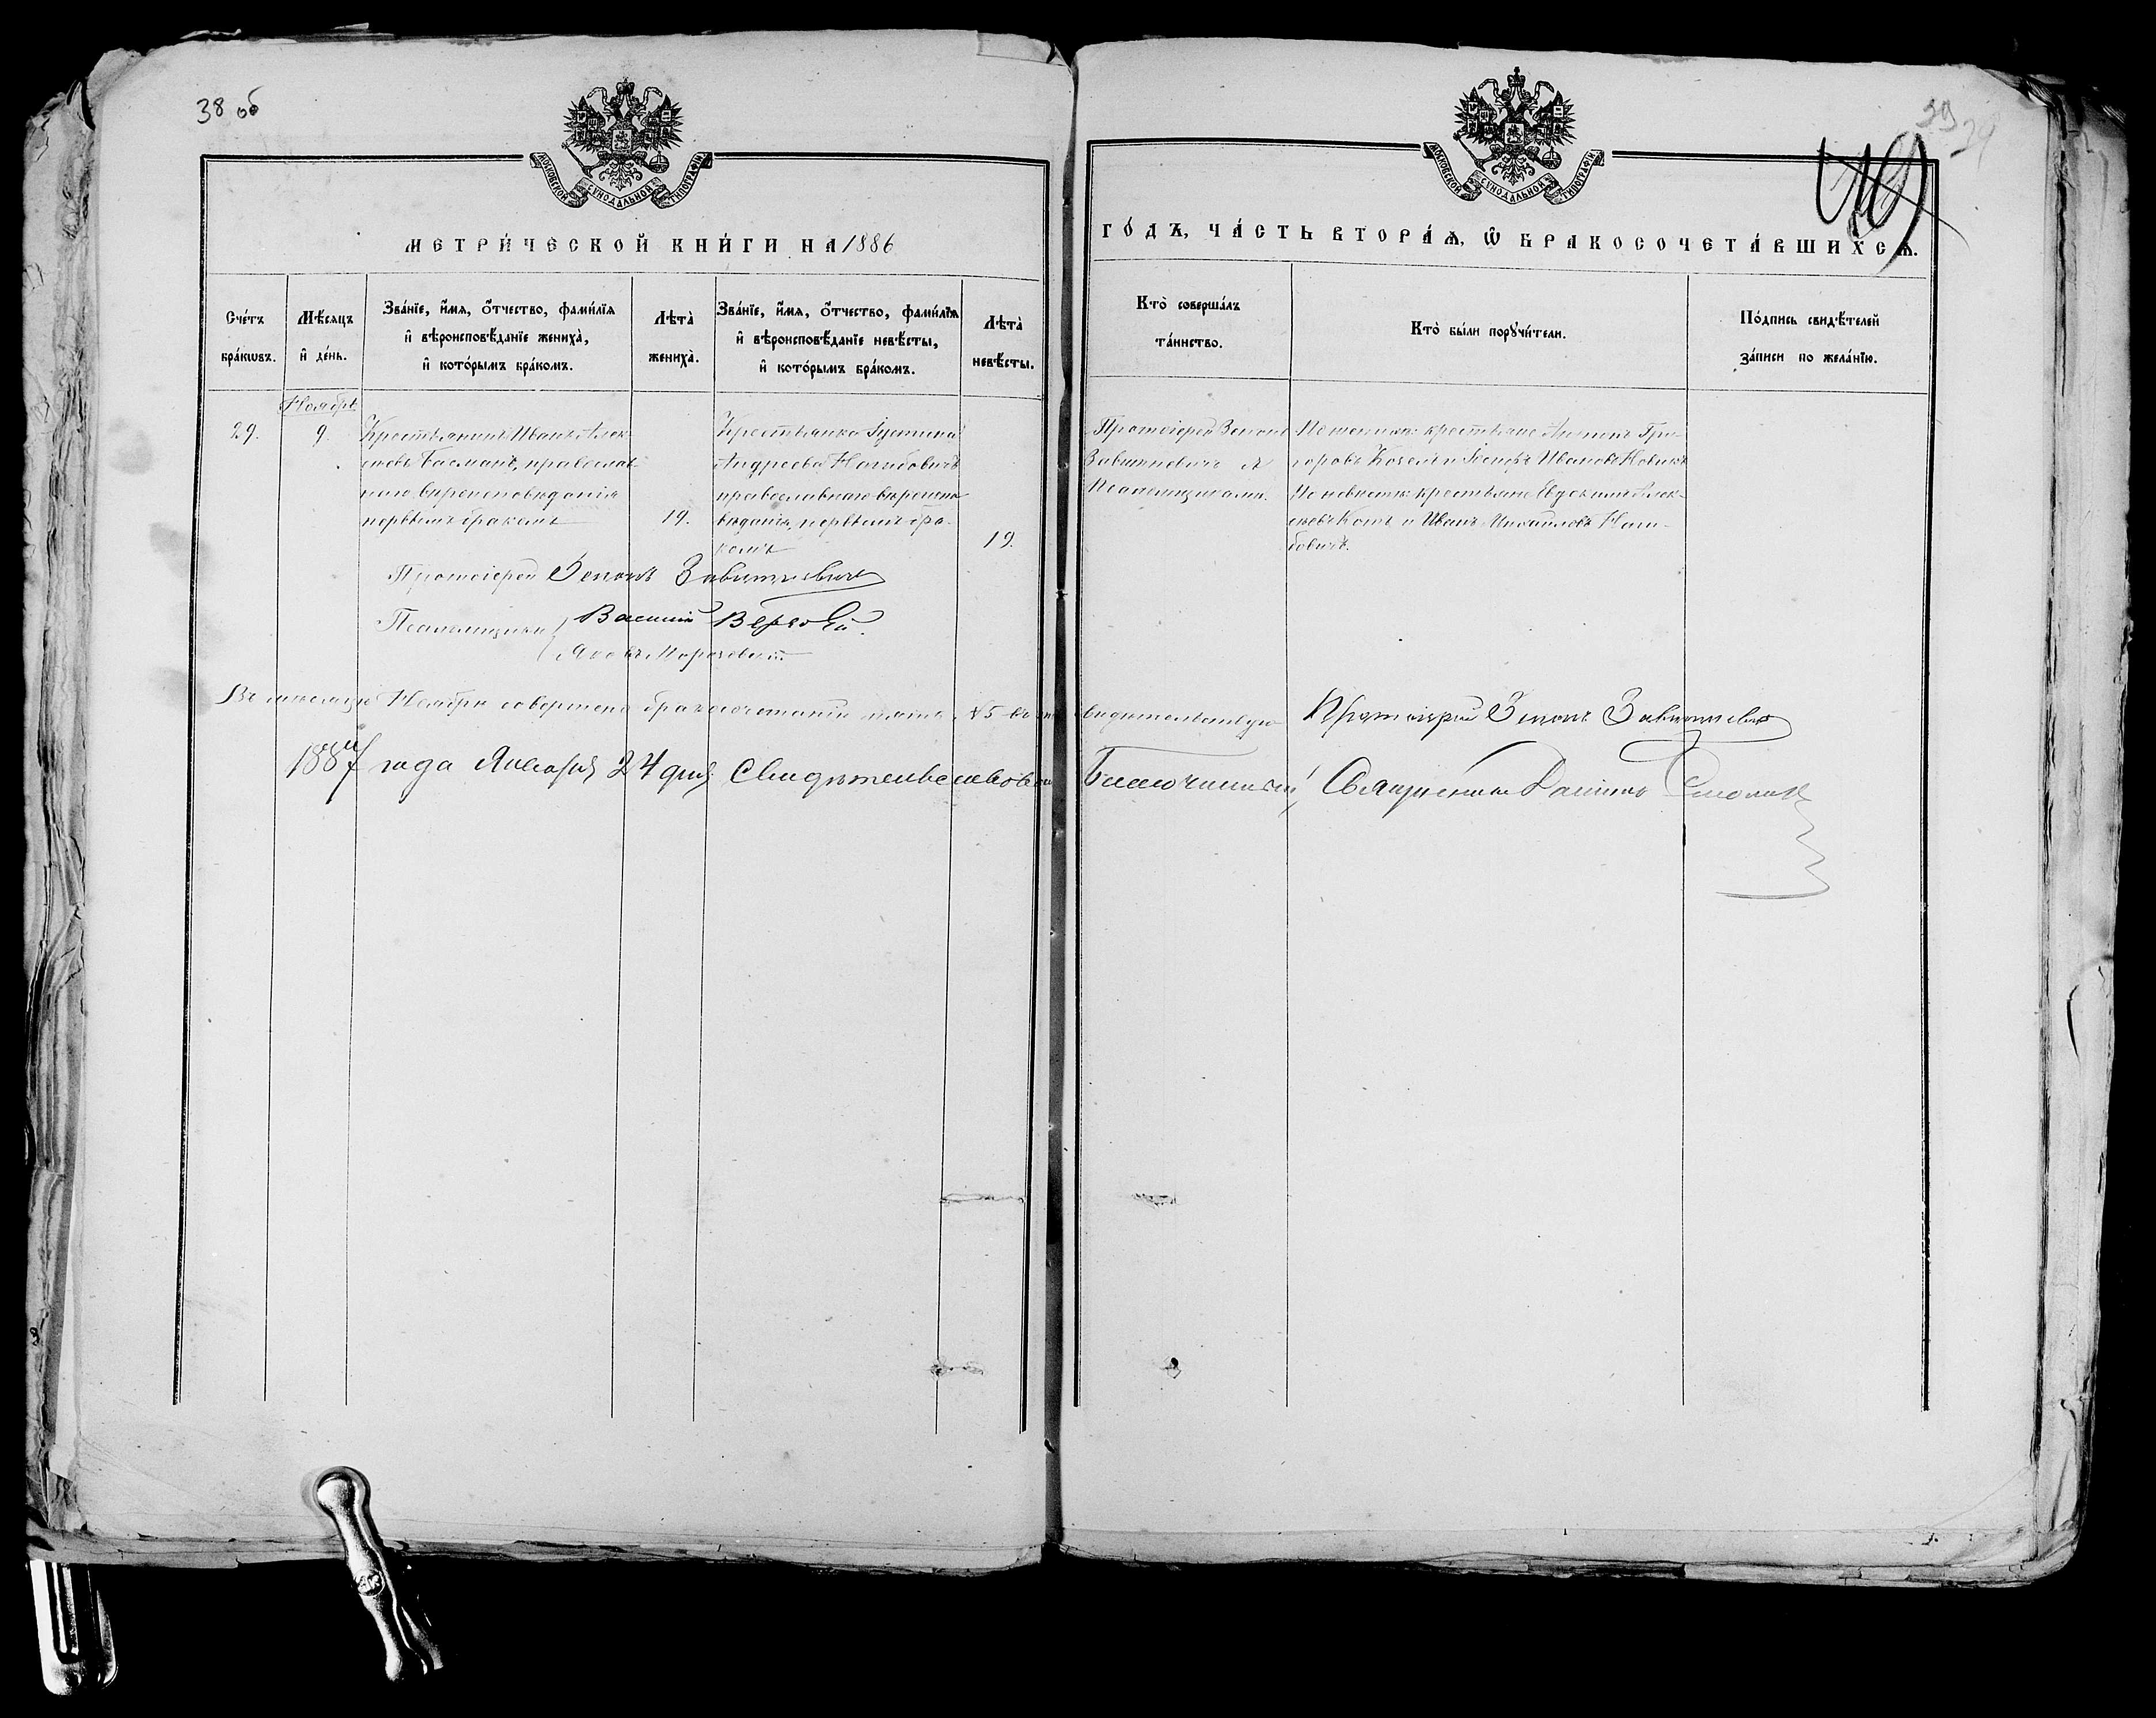 38 об
МОСКОВСКОЙ СѴНОДАЛЬНОЙ ТИПОГРАФІИ
МЕТРИ́ЧЕСКОЙ КНИ́ГИ НА 1886
Сче́тъ бра́кωвъ.
Мѣ́сяцъ и҆ де́нь.
Зва́нїе, и҆́мя, ѻ҆́тчество, фами́лїя
и҆ вѣроисповѣ́данїе жениха̀,
и҆ кото́рымъ бра́комъ.
Лѣта̀ жениха̀.
Зва́нїе, и҆́мя, ѻ҆́тчество, фами́лїя
и҆ вѣроисповѣ́данїе невѣ́сты,
и҆ кото́рымъ бра́комъ.
Лѣта̀ невѣ́сты.
Ноябрь
29.
9.
Крестьянинъ Иванъ Алек
сѣевъ Басманъ, православ
наго вѣроисповѣданія
первымъ бракомъ
19.
Крестьянка
Андреева Нагибовичъ
православнаго вѣроиспо
вѣданія, первымъ бра-
комъ
19.
Протоіерей Зенонъ Завитневичъ
Псаломщики Василій
Яковъ
Въ мѣсяцѣ Ноябрѣ
1887 года Января 24 дня Свидѣтельствовал
МОСКОВСКОЙ СѴНОДАЛЬНОЙ ТИПОГРАФІИ
39
ГО́ДЪ, ЧА́СТЬ ВТОРА́Ѧ, Ѽ БРАКОСОЧЕТА́ВШИХСѦ.
Кто̀ соверша́лъ
та́инство.
Кто̀ бы́ли порꙋчи́тели.
По́дпись свидѣ́телей
за́писи по жела́нїю.
Протоіерей Зенонъ
Завитневичъ
Псаломщиками.
По женихѣ: крестьяне Антонъ Гри-
горовъ Иванов Новикъ
По невѣстѣ: крестьяне Евдокимъ Алек-
сѣевъ Котъ и Иванъ Михайловъ Наги-
бовичъ.
Протоіерей Зенонъ Завитневичъ
Благочинный, Священникъ